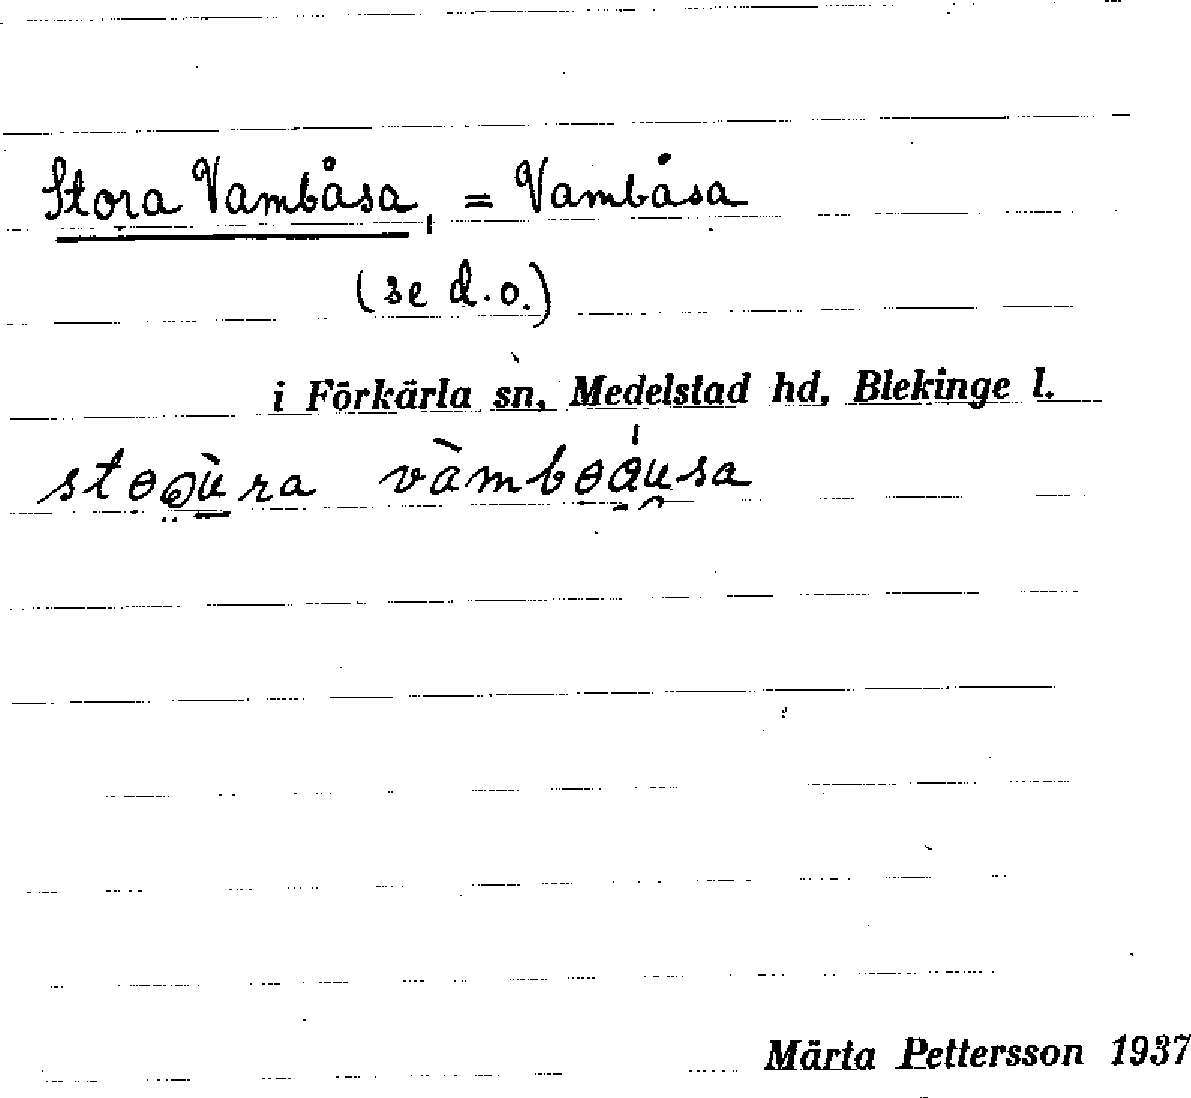 Stora Vambåsa, = Vambåsa
(se d.o.)
i Förkärla sn, Medelstad hd, Blekinge l.
Märta Pettersson 1937